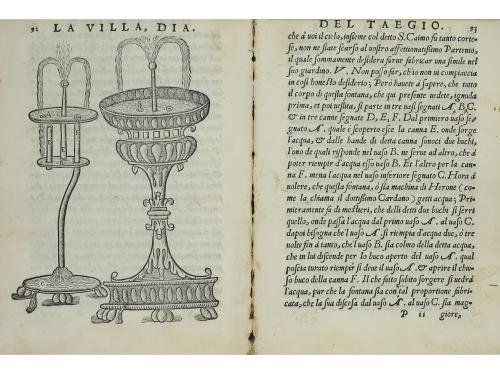 92 LA VILLA, DIA.
DEL TAEGIO. 93
che à voi il cielo, insieme col detto S. Caimo fu tanto corte-
se, non ne siate scarso al uostro affettionatissimo Partenio,
il quale sommamente desidera farne fabricar una simile nel
suo giardino. V. Non posso far, ch'io non ui compiaccia
in così honesto desiderio; Però hauete à sapere, che tutto
il corpo di questa fontana, che qui presente uedete, ignuda
prima, et poi uestita, si parte in tre uasi segnati A, B, C.
& in tre canne segnate D, E, F. Dal primiero uaso se-
gnato A. quale è scoperto esce la canna E, onde sorge
l'acqua, & dalle bande di detta canna sonoci due buchi,
l'uno de quali risponde nel uaso B. ne serue ad altro, che à
poter riempir d'acqua esso uaso B. Et l'altro per la can-
na F. mena l'acqua nel uaso inferiore segnato C. Hora à
uolere, che questa fontana, ò sia machina di Herone (co-
me la chiama il dottissimo Cardano) getti acqua; Pri-
mieramente fa di mestieri, che delli detti due buchi si serri
quello, onde passa l'acqua dal primo uaso A. al uaso C.
dapoi bisogna che l'uaso A. si riempia d'acqua due, ò tre
uolte fin à tanto, che l'uaso B. sia colmo della detta acqua,
che in lui discende per lo buco aperto del uaso A. qual
poscia turato riempir si deue il uaso A. & aprire il chiu-
so buco della canna F. Il che fatto subito sorgere si uedrà
l'acqua, pur che la fontana sia con tal proportione fabri-
cata, che la sua discesa dal uaso A. al uaso C. sia mag-
P ii giore,